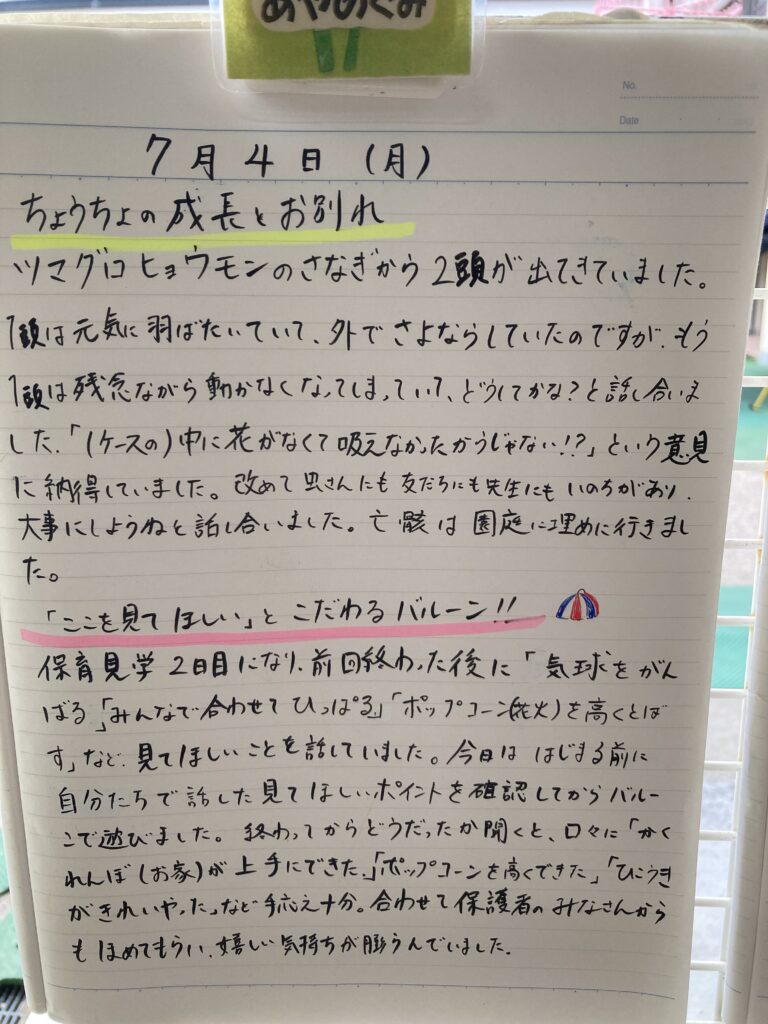 あやめぐみ
No.
Date
7月4日(月)
ちょうちょの成長とお別れ
ツマグロヒョウモンのさなぎから2頭が出てきていました。
1頭は元気に羽ばたいていて、外でさよならしていたのですが、もう
1頭は残念ながら動かなくなってしまっていて、どうしてかな?と話し合いま
した。「(ケースの)中に花がなくて吸えなかったからじゃない!?」という意見
に納得していました。改めて虫さんにも友だちにも先生にもいのちがあり、
大事にしようねと話し合いました。亡骸は園庭に埋めに行きまし
た。
「ここを見てほしい」とこだわるバルーン!!
保育見学2日目になり、前回終わった後に「気球をがん
ばる」「みんなで合わせてひっぱる」「ポップコーン(花火)を高くとば
す」など、見てほしいことを話していました。今日ははじまる前に
自分たちで話した見てほしいポイントを確認してからバルー
ンで遊びました。終わってからどうだったか聞くと、口々に「かく
れんぼ(お家)が上手にできた」「ポップコーンを高くできた」「ひこうき
がきれいやった」など手応え十分。合わせて保護者のみなさんから
もほめてもらい、嬉しい気持ちが膨らんでいました。